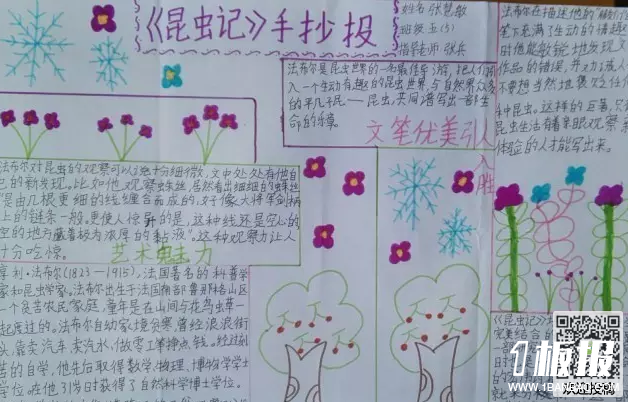 《昆虫记》手抄报
姓名 张慧敏
班级 五(3)
指导老师 张兵
法布尔是昆虫世界的一名最佳导游，把人们带
入一个生动有趣的昆虫世界，与自然界众多
的平凡子民——昆虫，共同谱写出一部生
命的乐章。
文笔优美引人入胜
法布尔在描述他的
笔下充满了生动的情趣
时他能敏锐地发现文
作品的错误，并
不要想当然地
种昆虫。这样的巨著，只
昆虫生活有着
体验的人才能写出来。
法布尔对昆虫的观察可以说十分细微，文中处处有他自
己的新发现。比如他观察蛛丝，居然看出细细的蛛丝
是由几根更细的线缠合而成的，好像大将军剑柄
上的链条一般。更使人惊异的是，这种线还是空心的
空的地方藏着极为浓厚的黏液”。这种观察力让人
十分吃惊。
艺术魅力
亨利·法布尔(1823-1915)，法国著名的科普学
家和昆虫学家。法布尔出生于法国南部鲁那格山区
一个贫苦农民家庭，童年是在山间与花鸟虫草一
起度过的。法布尔自幼家境穷寒，曾经浪浪街
头，靠卖汽车、卖汽水、做零工等挣点钱。经过刻
苦的自学，他先后取得数学、物理、博物学学士
学位。在他31岁时获得了自然科学博士学位。
《昆虫记》
完美结合的
1板报
WWW.1BANBAO.COM
欢迎投稿